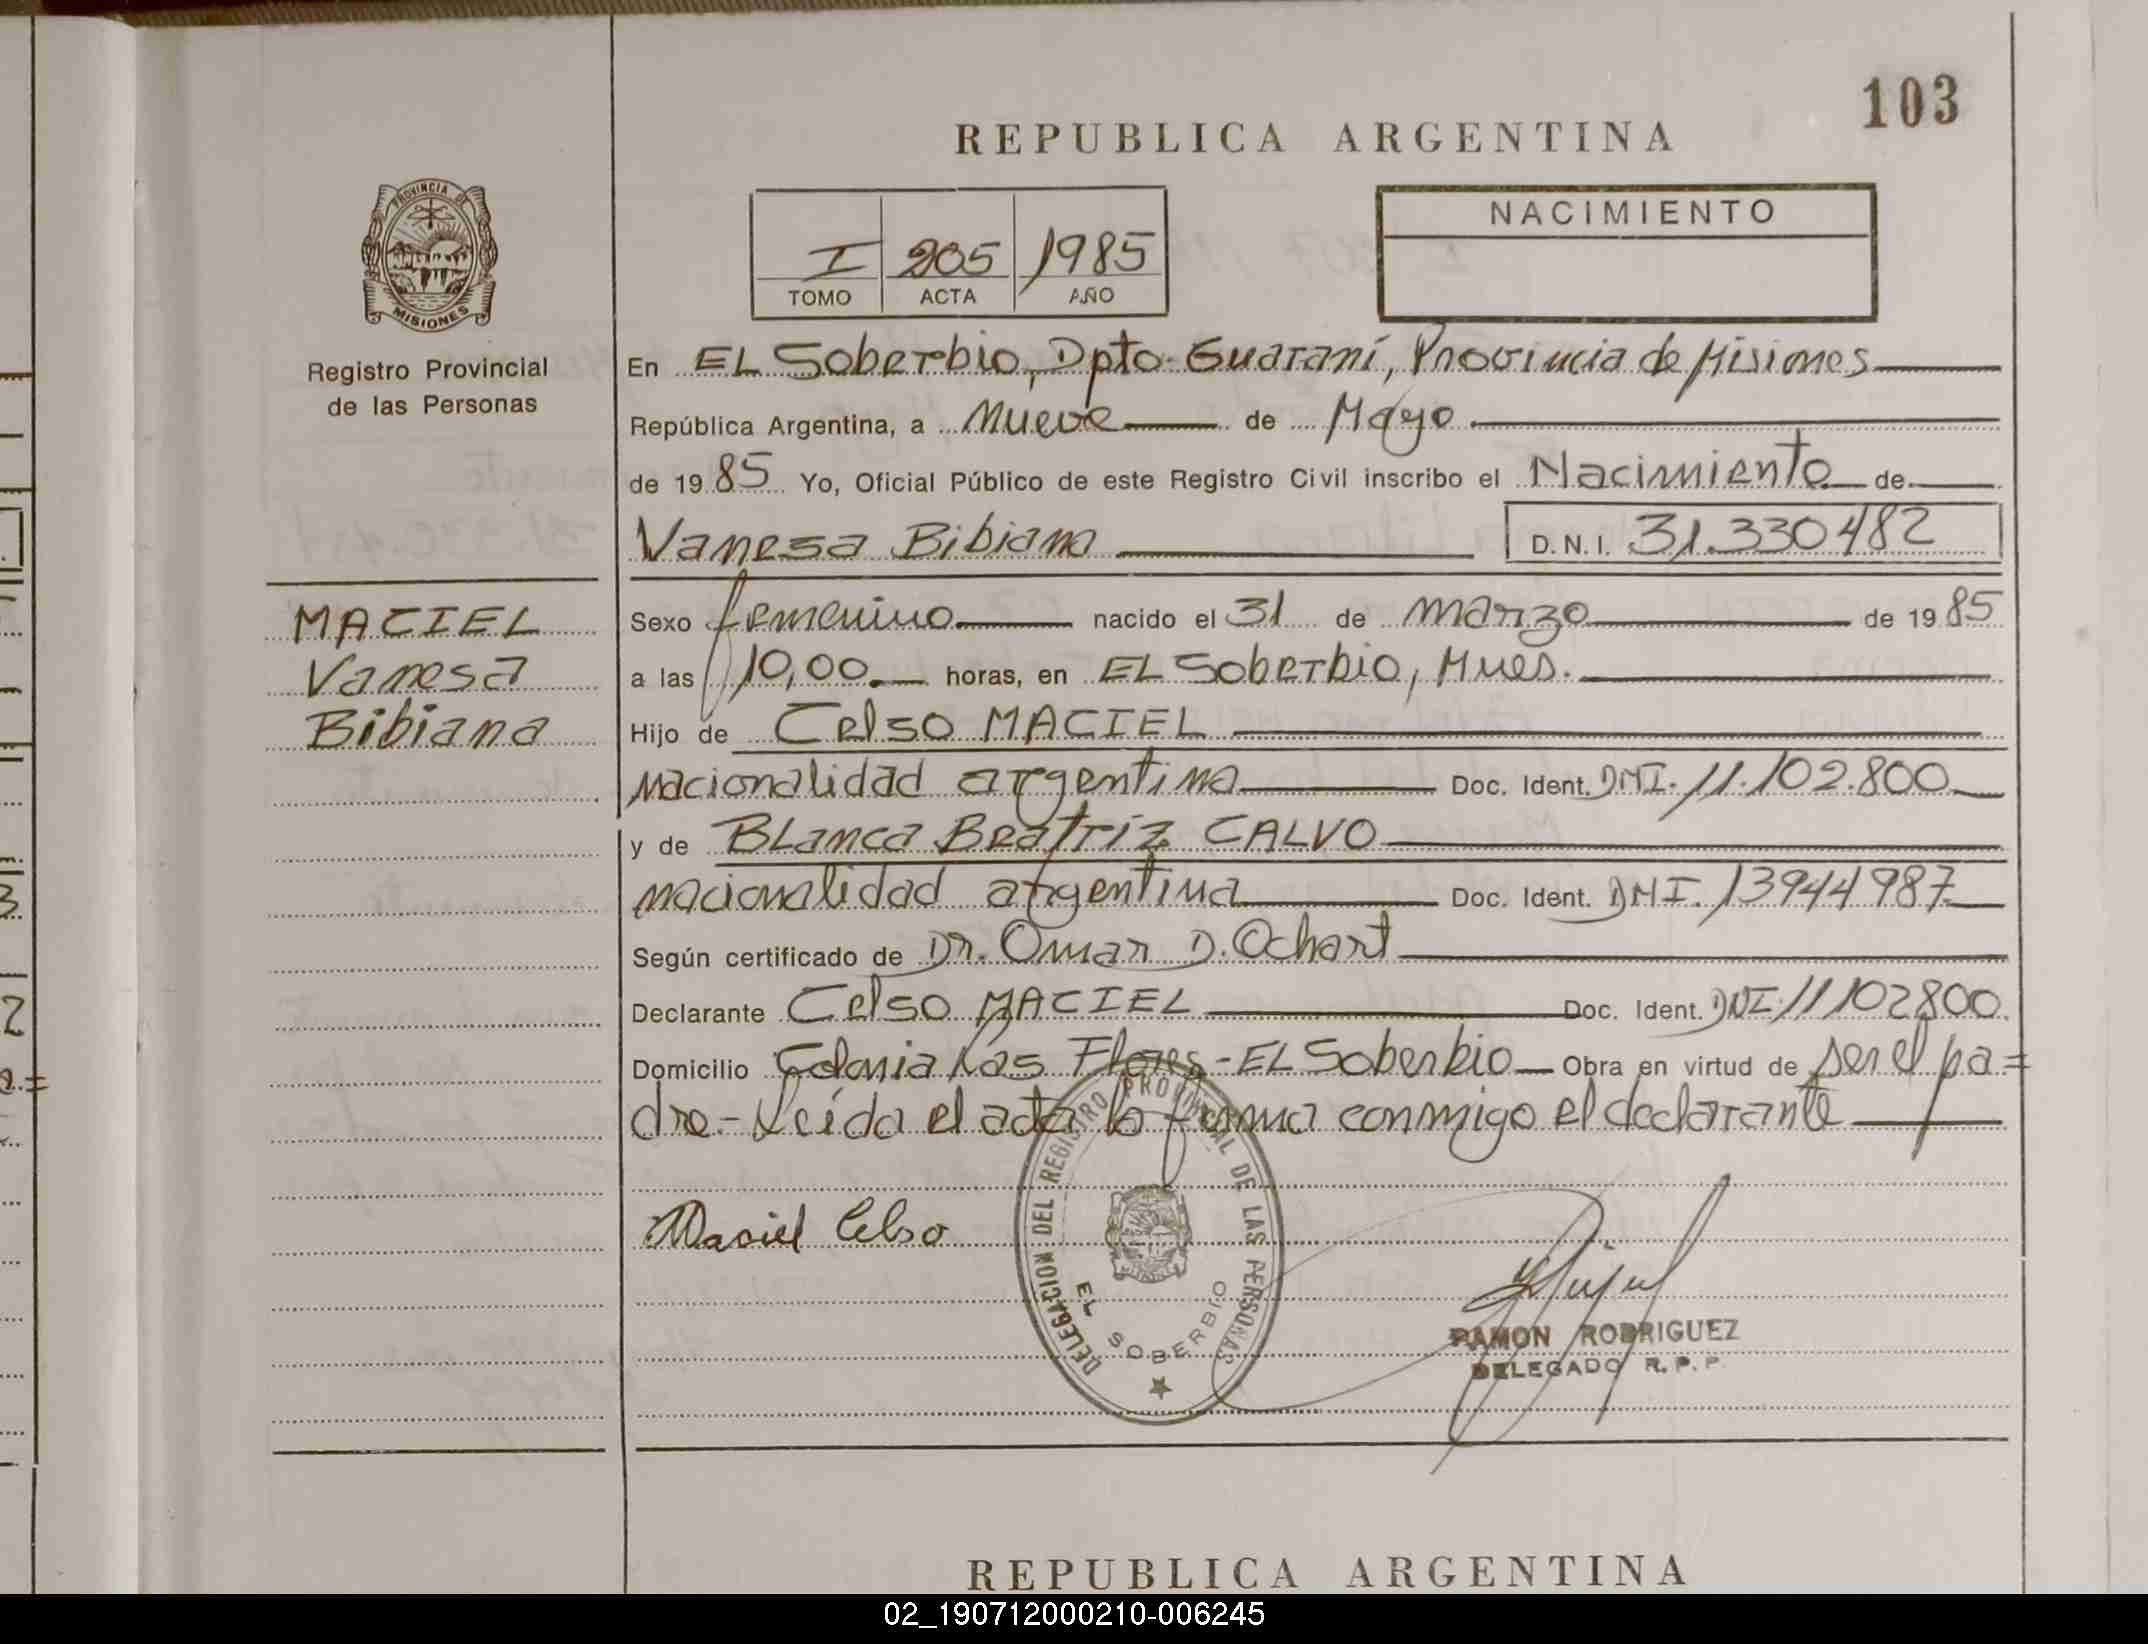 103
REPUBLICA ARGENTINA
PROVINCIA DE
MISIONES
Registro Provincial
de las Personas
I 205 1985
TOMO ACTA AÑO
NACIMIENTO
En EL Soberbio, Dpto. Guaraní, Provincia de Misiones
República Argentina, a nueve de Mayo
de 1985 Yo, Oficial Público de este Registro Civil inscribo el Nacimiento de
Vanesa Bibiana D.N.I. 31.330482
MACIEL
Vanesa
Bibiana
Sexo femenino nacido el 31 de marzo de 1985
a las 10,00 horas, en EL Soberbio, Mnes.
Hijo de Celso MACIEL
nacionalidad argentina Doc. Ident. DNI. 11.102.800
y de BLanca Beatriz CALVO
nacionalidad argentina Doc. Ident. DNI. 13944987
Según certificado de Dr. Omar D. Ochart
Declarante Celso MACIEL Doc. Ident. DNI. 11102800
Domicilio Colonia Las Flores - EL Soberbio Obra en virtud de ser el pa=
dre - Leída el acta lo firma conmigo el declarante
Maciel Celso
DELEGACION DEL REGISTRO PROVINCIAL DE LAS PERSONAS
EL SOBERBIO
RAMON RODRIGUEZ
DELEGADO R.P.P.
REPUBLICA ARGENTINA
02_190712000210-006245